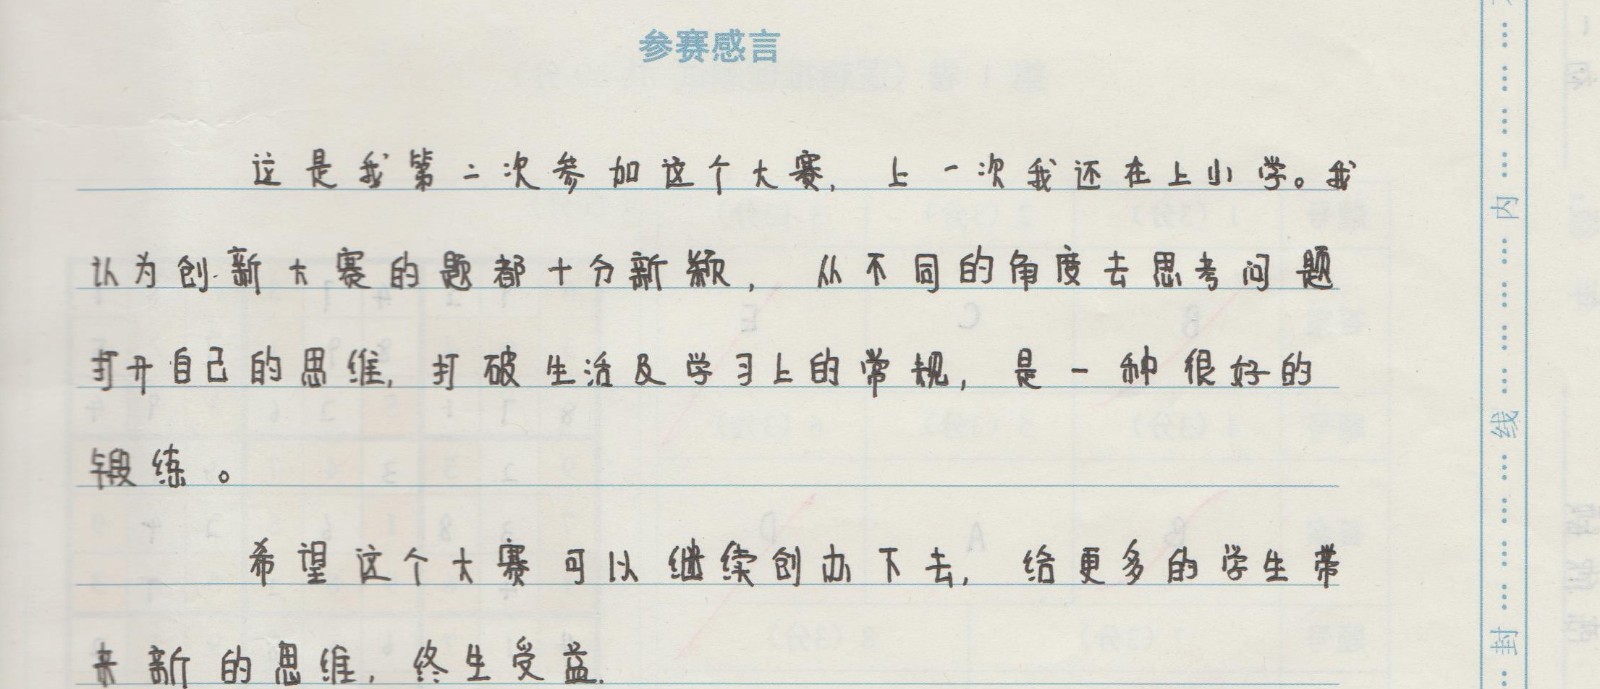 参赛感言
这是我第二次参加这个大赛，上一次我还在上小学。我
认为创新大赛的题都十分新颖，从不同的角度去思考问题
打开自己的思维，打破生活及学习上的常规，是一种很好的
锻练。
希望这个大赛可以继续创办下去，给更多的学生带
来新的思维，终生受益.
封 线 内